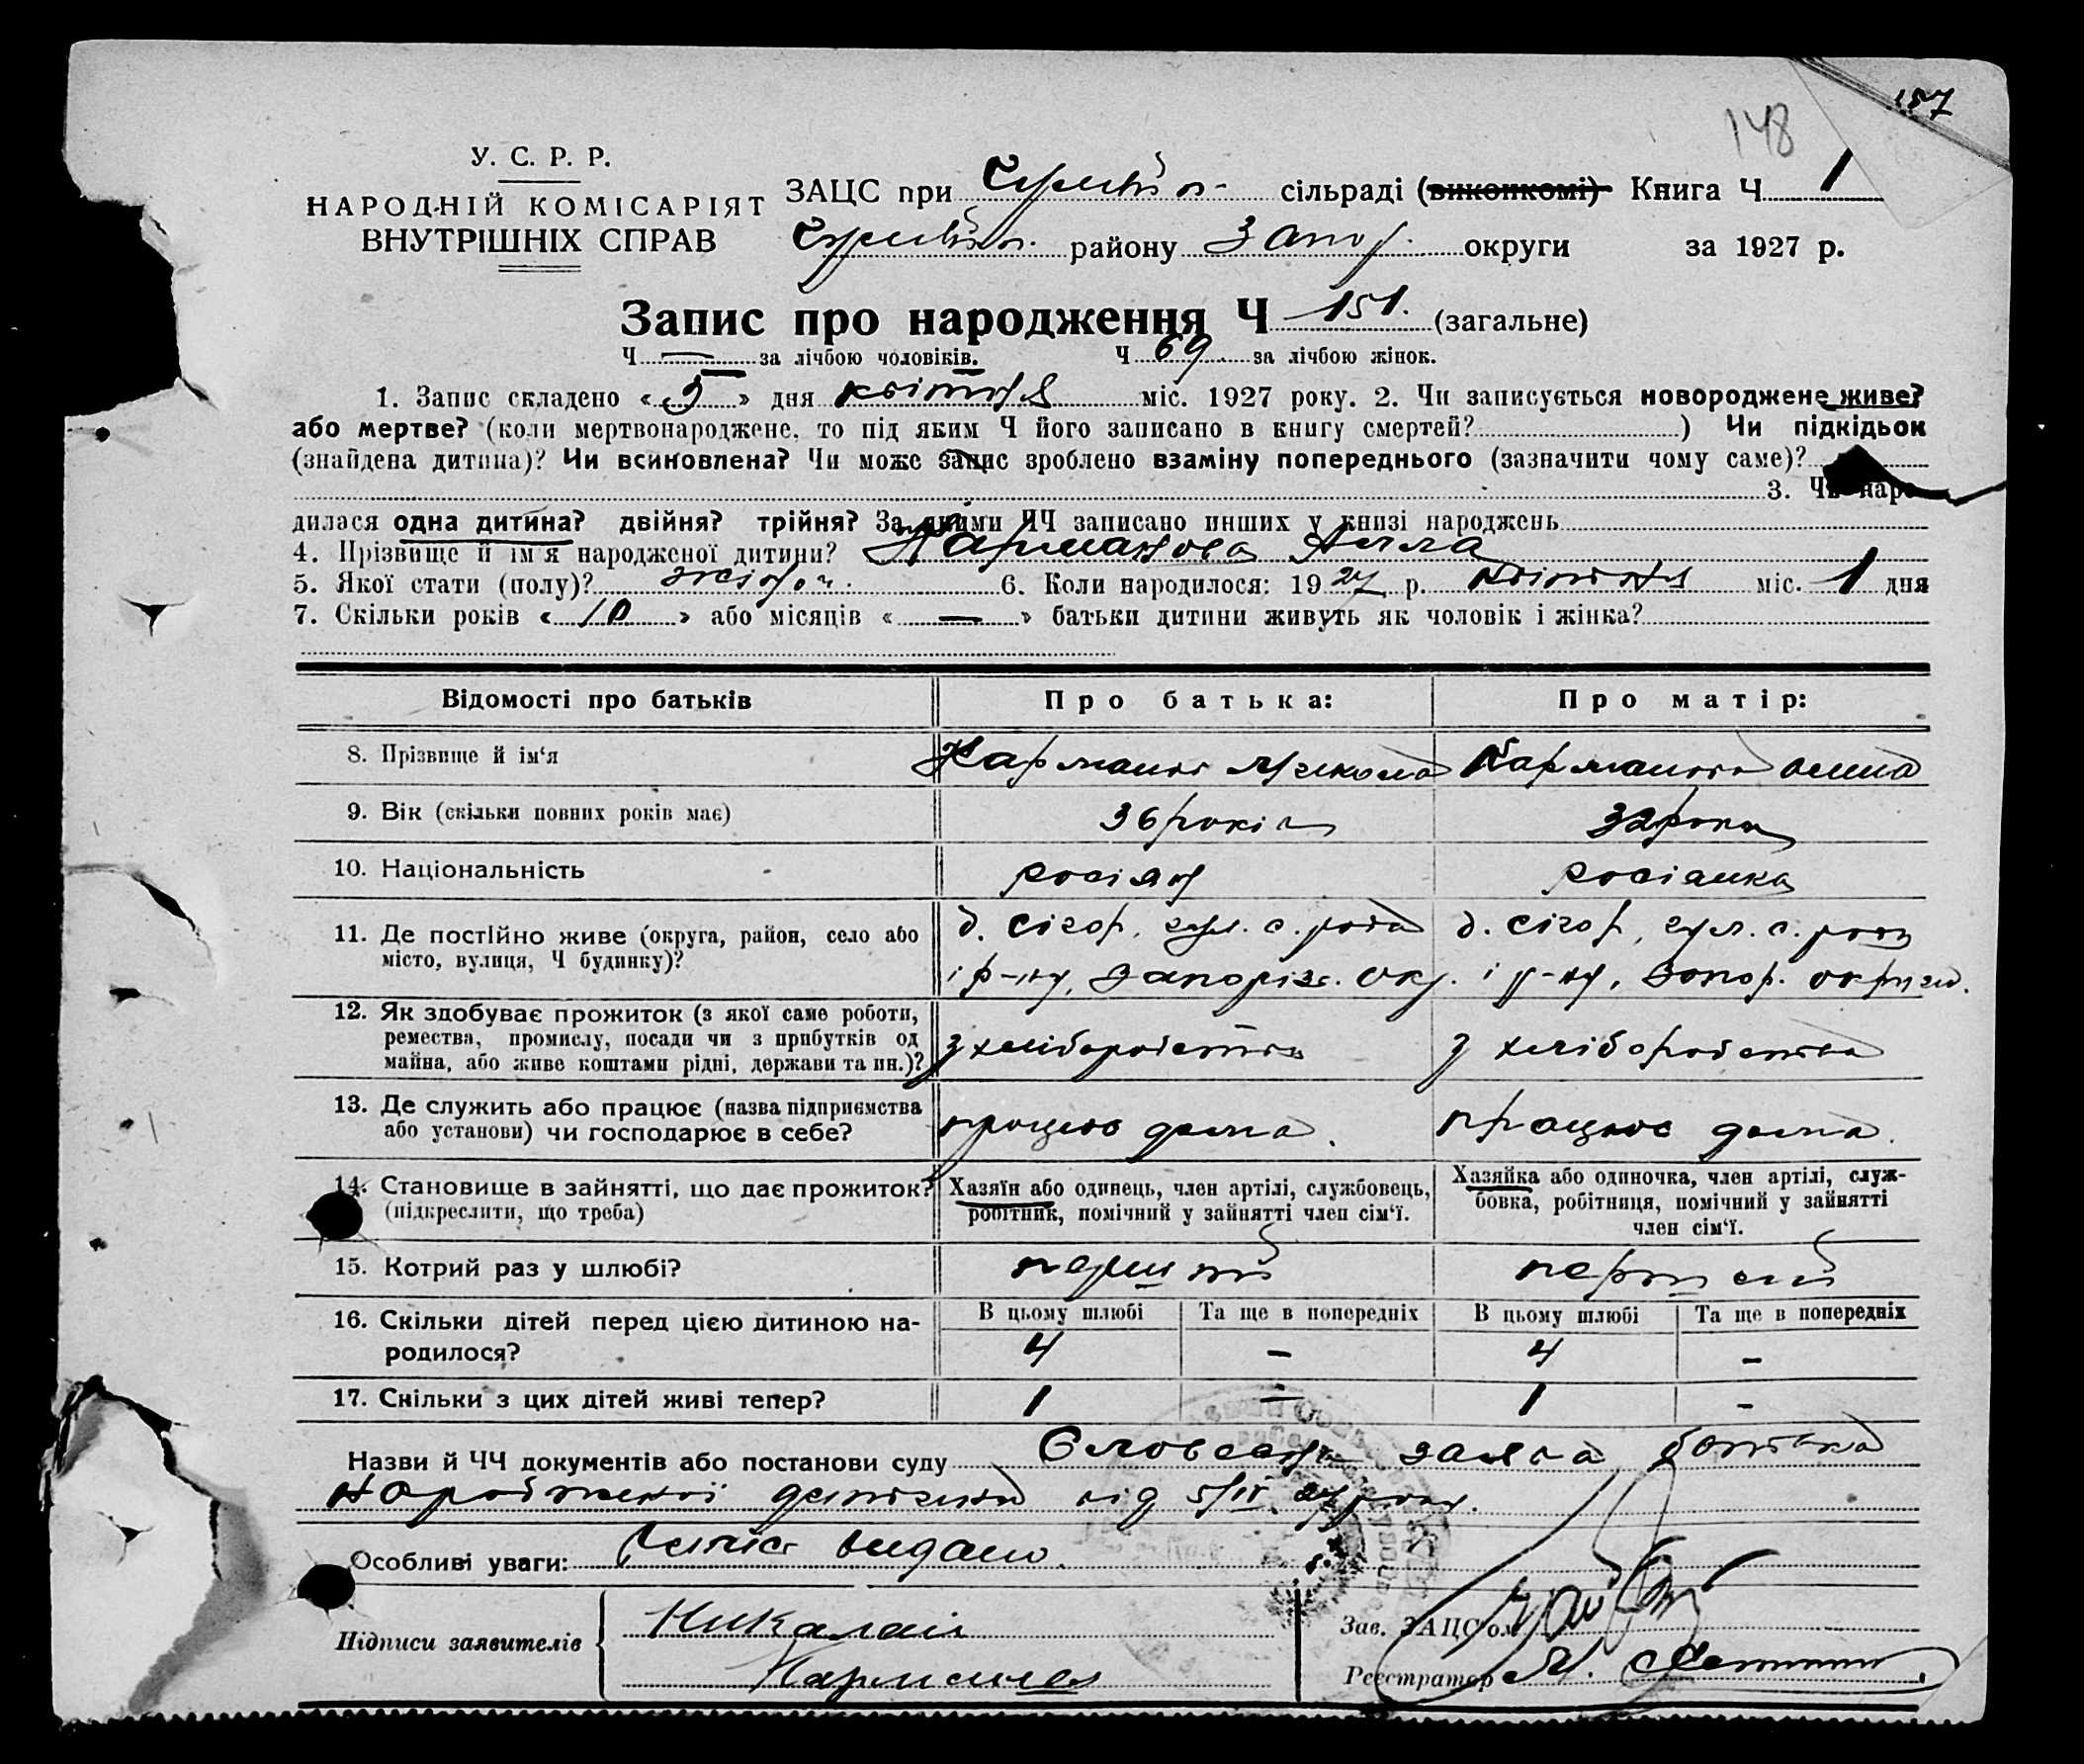 157
148
У. С. Р. Р.
НАРОДНІЙ КОМІСАРІЯТ
ВНУТРІШНІХ СПРАВ
ЗАЦС при сільраді (виконкомі) Книга Ч 1
району Запор. округи за 1927 р.
Запис про народження Ч 151. (загальне)
Ч — за лічбою чоловіків. Ч 69 за лічбою жінок.
1. Запис складено « 5 » дня квітня міс. 1927 року. 2. Чи записується новороджене живе?
або мертве? (коли мертвонароджене, то під яким Ч його записано в книгу смертей? ) Чи підкідьок
(знайдена дитина)? Чи всиновлена? Чи може запис зроблено взаміну попереднього (зазначити чому саме)?
3. Чи наро-
дилася одна дитина? двійня? трійня? За якими ЧЧ записано инших у книзі народжень
4. Прізвище й ім'я народженої дитини? Карманова Алла
5. Якої стати (полу)? жіноч. 6. Коли народилося: 1927 р. квітня міс. 1 дня
7. Скільки років « 10 » або місяців « — » батьки дитини живуть як чоловік і жінка?
Відомості про батьків Про батька: Про матір:
8. Прізвище й ім'я Карманов Микола Карманова
9. Вік (скільки повних років має) 36 років 32 роки
10. Національність росіян росіанка
11. Де постійно живе (округа, район, село або д. сігор, с. рода д. сігор, с.
місто, вулиця, Ч будинку)? і р-ну, Запоріж. окр. і р-ну, Запор. округи.
12. Як здобуває прожиток (з якої саме роботи,
ремества, промислу, посади чи з прибутків од з хліборобства з хліборобства
майна, або живе коштами рідні, держави та ин.)?
13. Де служить або працює (назва підприємства працює дома. працює дома.
або установи) чи господарює в себе?
14. Становище в зайнятті, що дає прожиток? Хазяїн або одинець, член артілі, службовець, Хазяйка або одиночка, член артілі, служ-
(підкреслити, що треба) робітник, помічний у зайнятті член сім'ї. бовка, робітниця, помічний у зайнятті
член сім'ї.
15. Котрий раз у шлюбі? перший перший
16. Скільки дітей перед цією дитиною на- В цьому шлюбі Та ще в попередніх В цьому шлюбі Та ще в попередніх
родилося? 4 - 4 -
17. Скільки з цих дітей живі тепер? 1 - 1 -
Назви й ЧЧ документів або постанови суду Словесна заява батька
народженої дитини від 5/IV 27 року.
Особливі уваги: видано.
Підписи заявителів Николай
Карманов
Зав. ЗАЦС'ом
Реєстратор